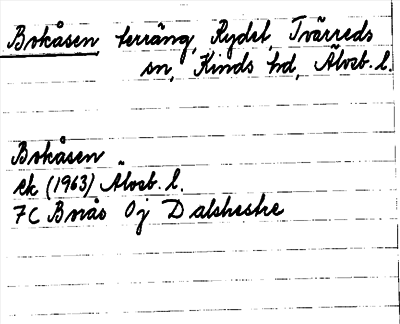 Bokåsen terräng, Rydet, Tvärreds
sn, Kinds hd, Älvsb. l.
Bokåsen
ek (1963) Älvsb. l.
7C Borås 0j Dalshestre